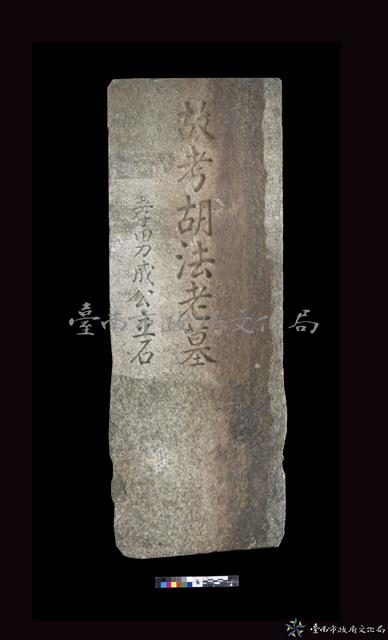 故考胡法老墓
孝男成公立石
臺南市政府文化局
臺南市政府文化局